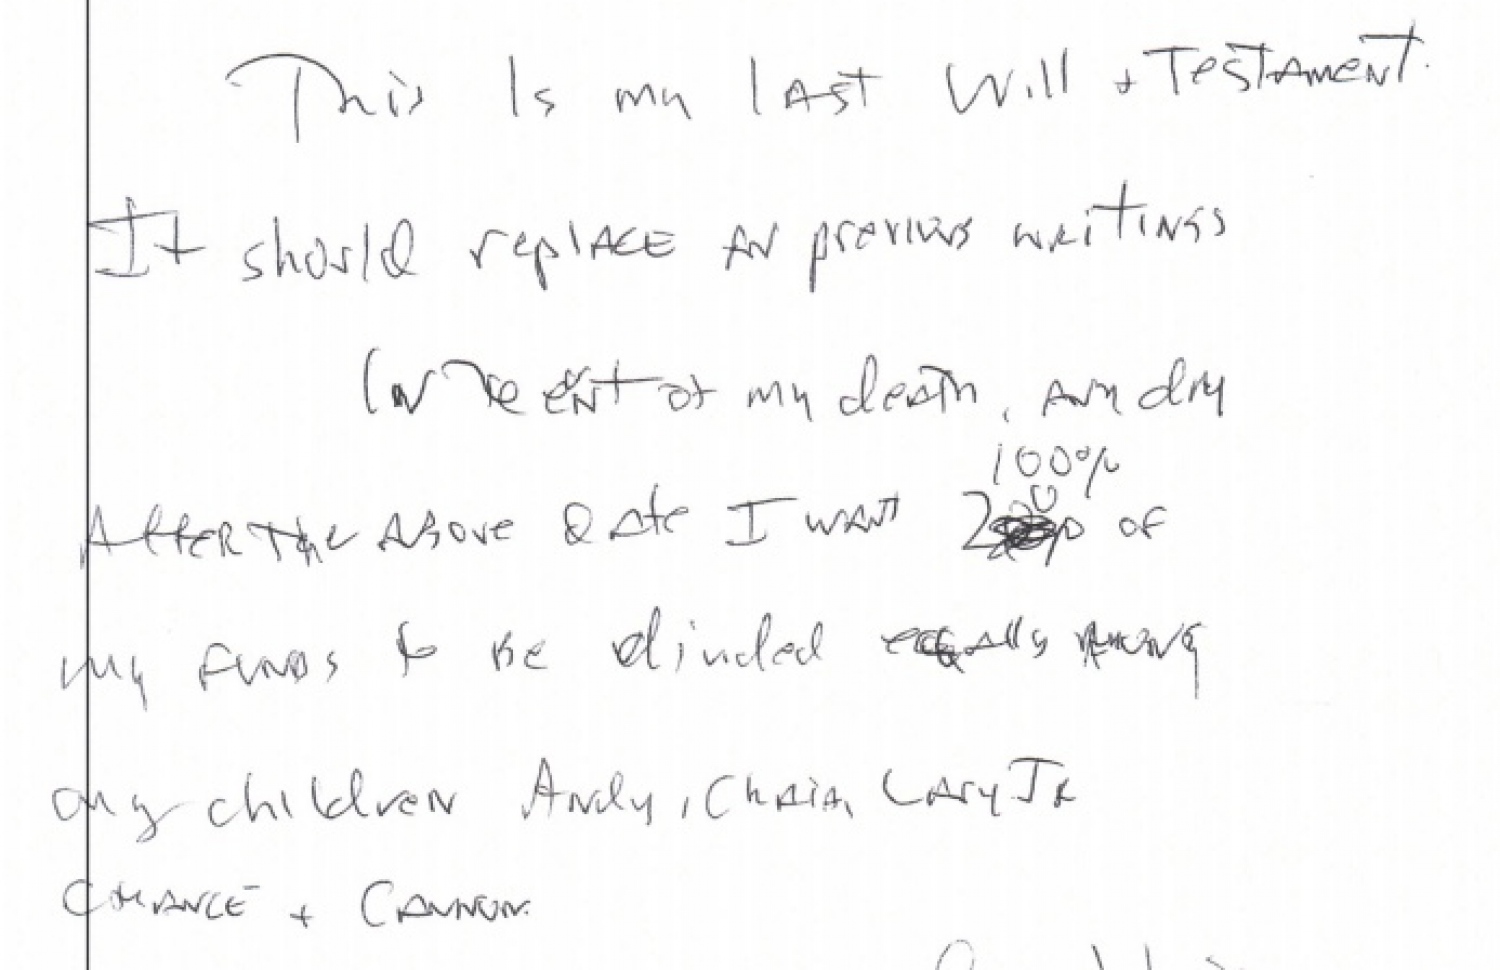 This Is my last Will + Testament.
It should replACE AN previous writings
In The evEnt of my death, Any dAy
100%
After The Above Date I want of
my funds to BE divided equally Among
my children Andy, Chaia, Lary JR
CHANCE + Cannon